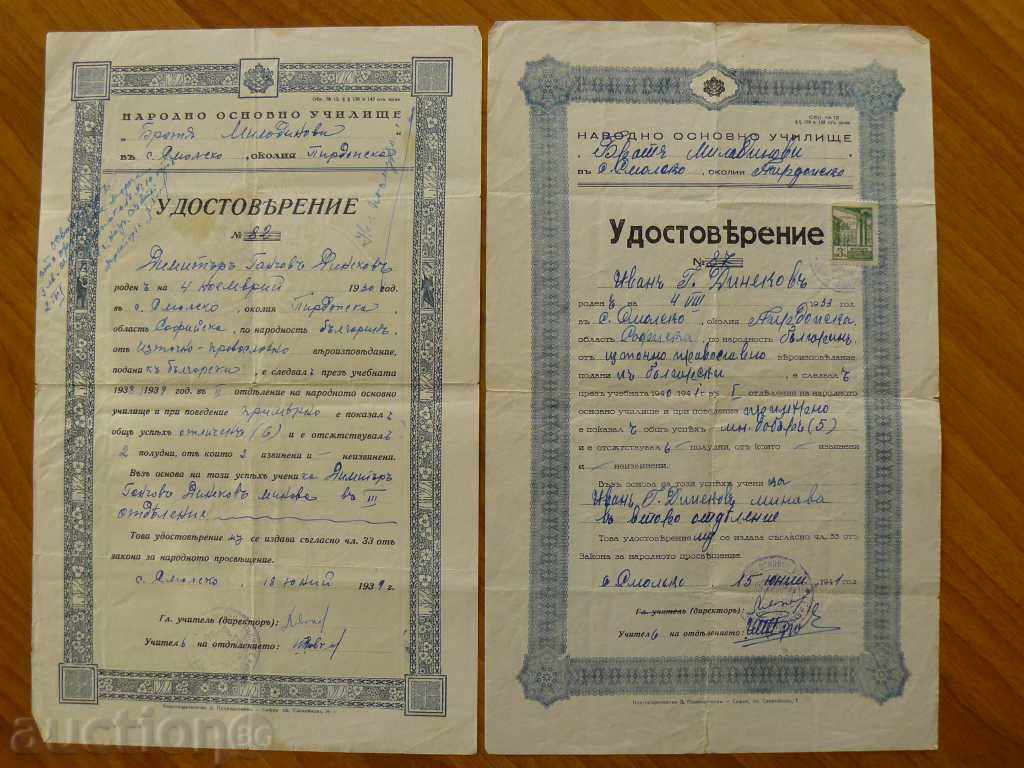 Обр. № 12, § § 138 и 140 отъ прав.
НАРОДНО ОСНОВНО УЧИЛИЩЕ
„ Братя Миладинови “
въ с. Смолско, околия Пирдопска
УДОСТОВѢРЕНИЕ
№ 82
Димитъръ Ганчовъ Динковъ
роденъ на 4 ноемврий 1930 год.
въ с. Смолско, околия Пирдопска
област Софийска, по народность българинъ,
отъ източно-православно вѣроизповѣдание,
подани къ български, е следвалъ презъ учебната
1938/1939 год. въ II отдѣление на народното основно
училище и при поведение примѣрно е показалъ
общъ успѣхъ отличенъ (6) и е отсѫтствувалъ
2 полудни, отъ които 2 извинени и — неизвинени.
Възъ основа на този успѣхъ ученика Димитъръ
Ганчовъ Динковъ минава въ III
отдѣление
Това удостовѣрение му се издава съгласно чл. 33 отъ
закона за народното просвѣщение.
с. Смолско, 18 юний 1939 г.
Гл. учитель (директоръ):
Учитель на отдѣлението:
НАРОДНО ОСНОВНО УЧИЛИЩЕ
„ Братя Миладинови “
въ с. Смолско, околия Пирдопско
Удостовѣрение
№ 87
Иванъ Г. Динковъ
роденъ на 4 VIII 1933 год
въ с. Смолско, околия Пирдопска,
область Софийска по народность българинъ
отъ източно православно вѣроизповѣдание,
подани къ български, е следвалъ
презъ учебната 1940-1941 г. въ I отдѣление на народното
основно училище и при поведение примѣрно
е показалъ общъ успѣхъ мн. добъръ (5)
и е отсѫтствувалъ 6 полудни, отъ които — извинени
и — неизвинени.
Възъ основа на този успѣхъ учени ка
Иванъ Г. Динковъ минава
въ второ отдѣление
Това удостовѣрение му се издава съгласно чл. 33 отъ
Закона за народното просвѣщение.
с. Смолско, 15 юний 1941 год
Гл. учитель (директоръ):
Учитель на отдѣлението:
auction.bg